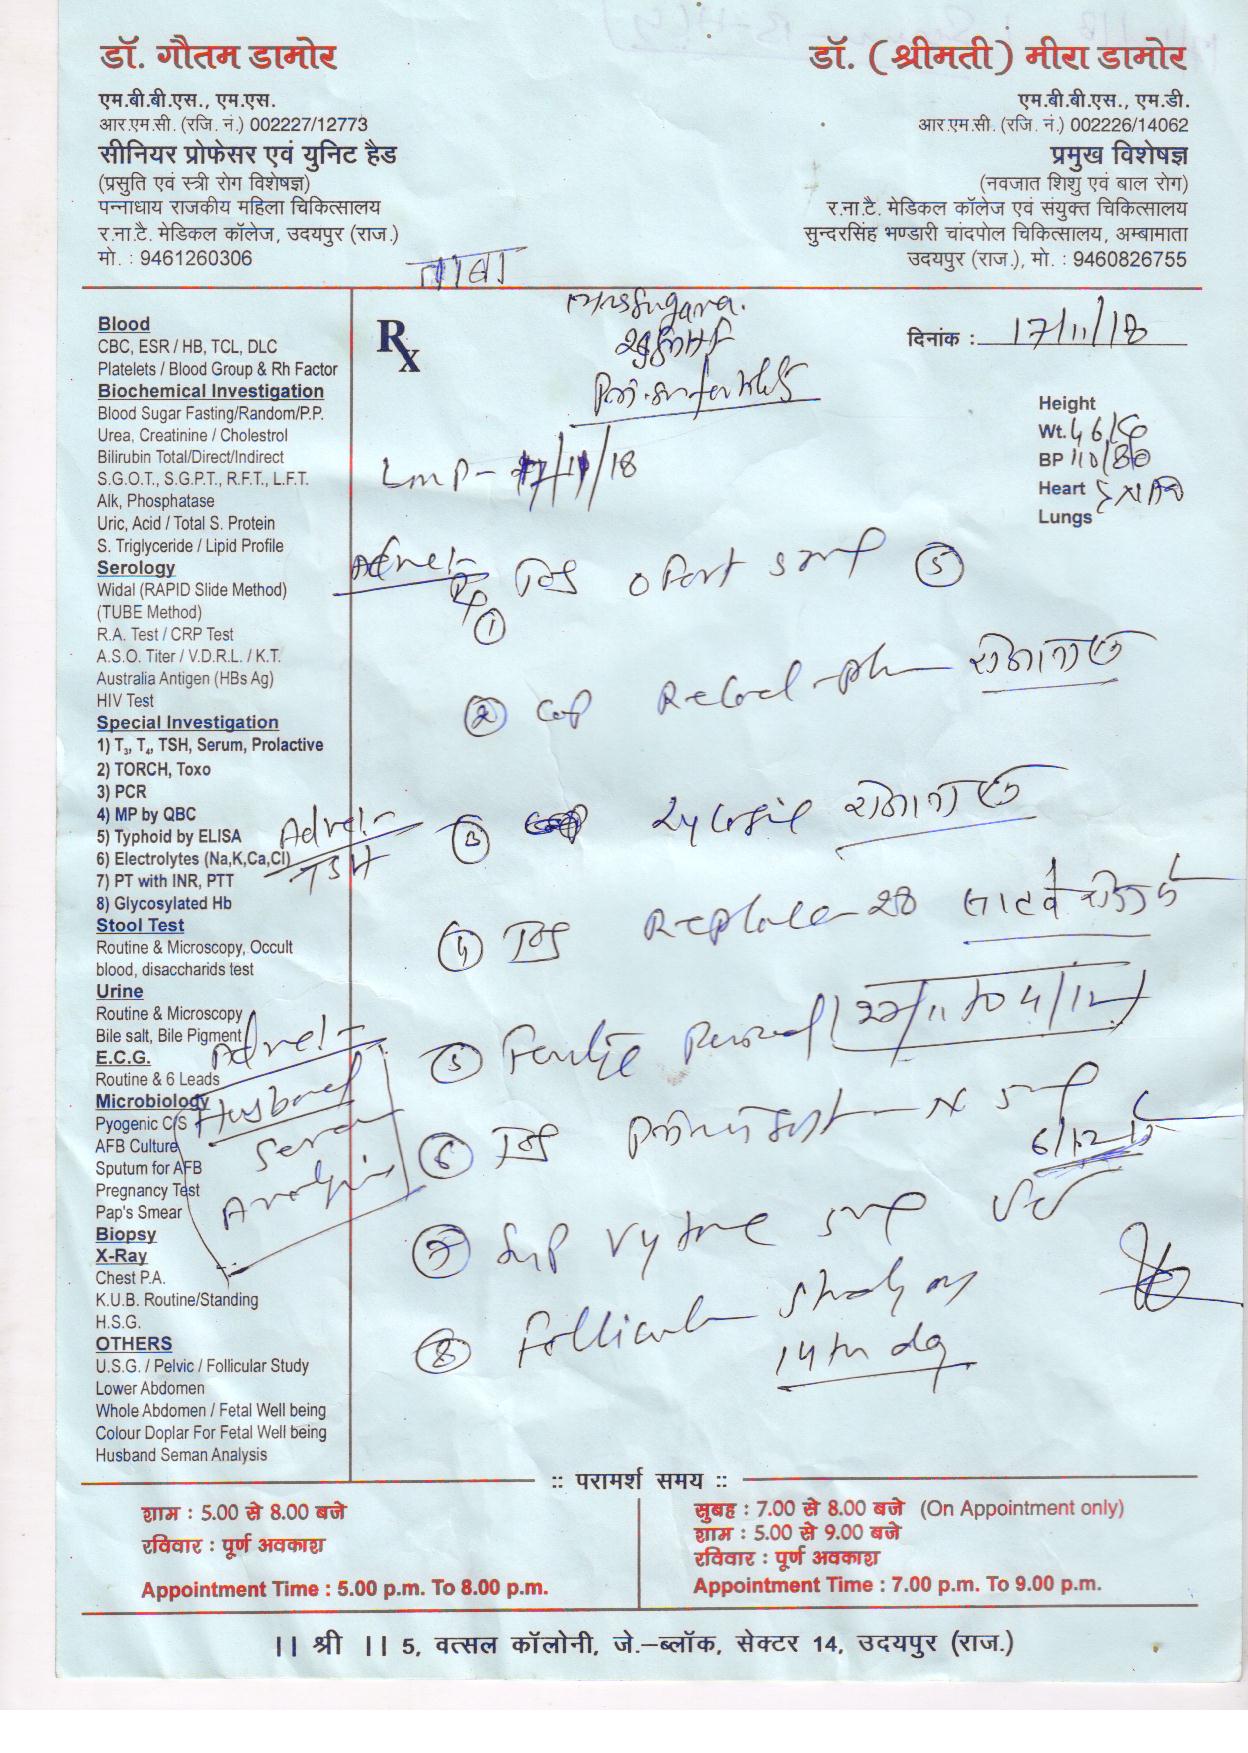 डॉ. गौतम डामोर
एम.बी.बी.एस., एम.एस.
आर.एम.सी. (रजि. नं.) 002227/12773
सीनियर प्रोफेसर एवं युनिट हैड
(प्रसुति एवं स्त्री रोग विशेषज्ञ)
पन्नाधाय राजकीय महिला चिकित्सालय
र.ना.टै. मेडिकल कॉलेज, उदयपुर (राज.)
मो. : 9461260306
डॉ. (श्रीमती) मीरा डामोर
एम.बी.बी.एस., एम.डी.
आर.एम.सी. (रजि. नं.) 002226/14062
प्रमुख विशेषज्ञ
(नवजात शिशु एवं बाल रोग)
र.ना.टै. मेडिकल कॉलेज एवं संयुक्त चिकित्सालय
सुन्दरसिंह भण्डारी चांदपोल चिकित्सालय, अम्बामाता
उदयपुर (राज.), मो. : 9460826755
Blood
CBC, ESR / HB, TCL, DLC
Platelets / Blood Group & Rh Factor
Biochemical Investigation
Blood Sugar Fasting/Random/P.P.
Urea, Creatinine / Cholestrol
Bilirubin Total/Direct/Indirect
S.G.O.T., S.G.P.T., R.F.T., L.F.T.
Alk, Phosphatase
Uric, Acid / Total S. Protein
S. Triglyceride / Lipid Profile
Serology
Widal (RAPID Slide Method)
(TUBE Method)
R.A. Test / CRP Test
A.S.O. Titer / V.D.R.L. / K.T.
Australia Antigen (HBs Ag)
HIV Test
Special Investigation
1) T3, T4, TSH, Serum, Prolactive
2) TORCH, Toxo
3) PCR
4) MP by QBC
5) Typhoid by ELISA
6) Electrolytes (Na,K,Ca,Cl)
7) PT with INR, PTT
8) Glycosylated Hb
Stool Test
Routine & Microscopy, Occult
blood, disaccharids test
Urine
Routine & Microscopy
Bile salt, Bile Pigment
E.C.G.
Routine & 6 Leads
Microbiology
Pyogenic C/S
AFB Culture
Sputum for AFB
Pregnancy Test
Pap's Smear
Biopsy
X-Ray
Chest P.A.
K.U.B. Routine/Standing
H.S.G.
OTHERS
U.S.G. / Pelvic / Follicular Study
Lower Abdomen
Whole Abdomen / Fetal Well being
Colour Doplar For Fetal Well being
Husband Seman Analysis
Advel-
TSH
Advel-
Husband
Semen
Analysis
Rx
दिनांक : 17/11/18
Height
Wt. 46/
BP 110/80
Heart
Lungs
LMP - 17/11/18
Advel-
①
②
③
④ 20
⑤ (22/11 to 4/12)
⑥ 6/12
⑦
⑧ Follicular Study on
14th day
:: परामर्श समय ::
शाम : 5.00 से 8.00 बजे
रविवार : पूर्ण अवकाश
Appointment Time : 5.00 p.m. To 8.00 p.m.
सुबह : 7.00 से 8.00 बजे (On Appointment only)
शाम : 5.00 से 9.00 बजे
रविवार : पूर्ण अवकाश
Appointment Time : 7.00 p.m. To 9.00 p.m.
|| श्री || 5, वत्सल कॉलोनी, जे.–ब्लॉक, सेक्टर 14, उदयपुर (राज.)